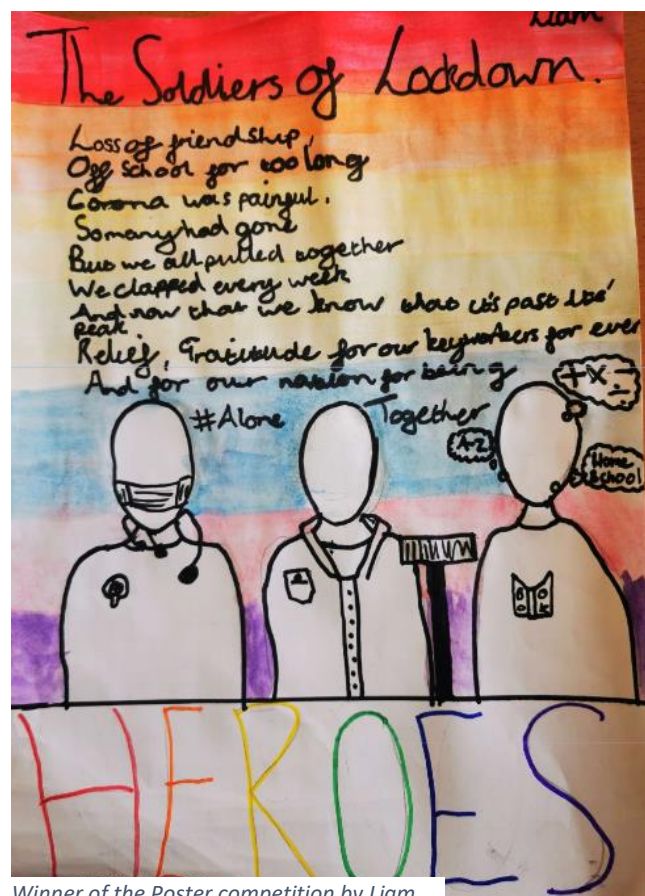 Liam
The Soldiers of Lockdown.
Loss of friendship,
Off school for too long
Corona was painful.
So many had gone
But we all pulled together
We clapped every week
And now that we know that it's past its'
peak
Relief, Gratitude for our keyworkers for ever
And for our nation for being
#Alone Together
+ × − ÷
A-Z
Home
School
BOOK
HEROES
Winner of the Poster competition by Liam